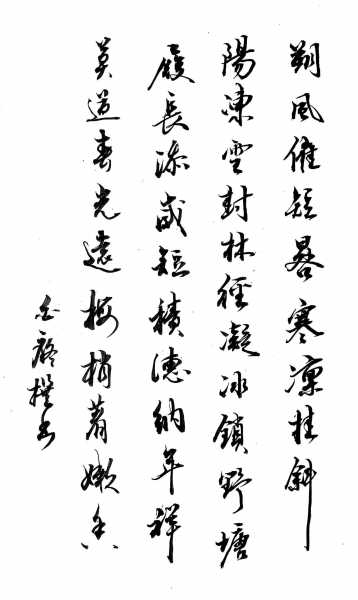 朔風催短晷寒凜挂斜
陽凍雲封林徑凝冰鎖野塘
履長添歲短積德納年祥
莫道春光遠梅梢著嫩香
撰書